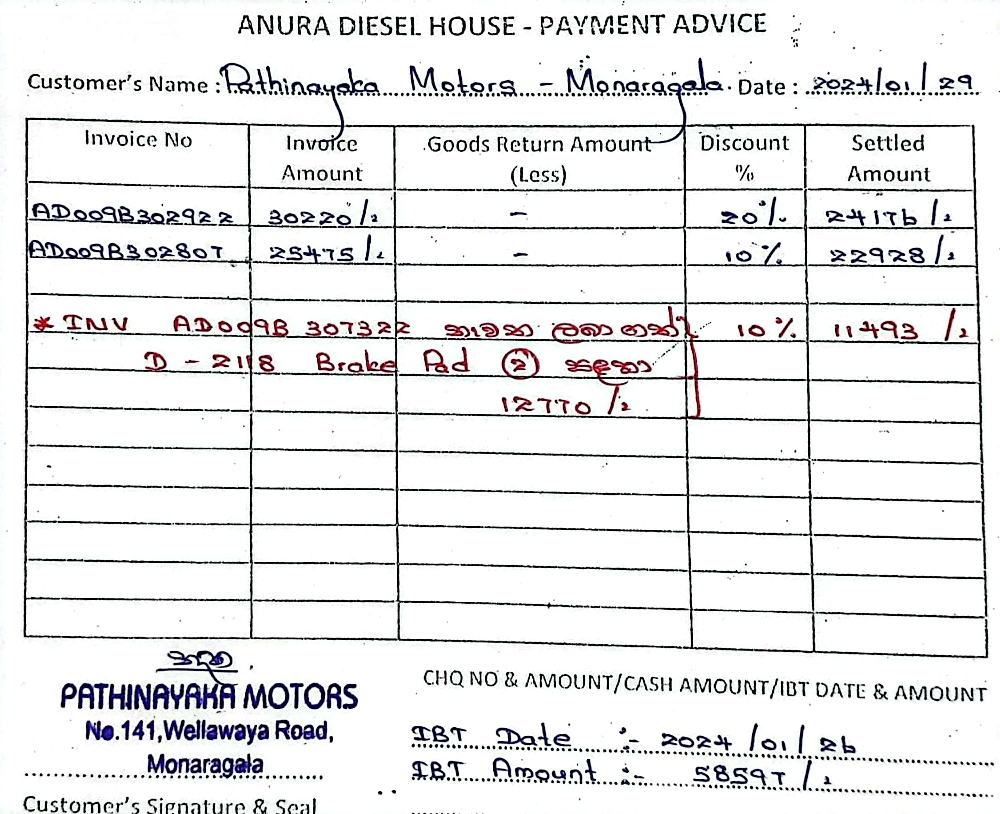 ANURA DIESEL HOUSE - PAYMENT ADVICE
Customer's Name : Pathinayaka Motors - Monaragala. Date : 2024/01/29
Invoice No Invoice Amount Goods Return Amount (Less) Discount % Settled Amount
AD009B302922 30220/2 - 20% 24176/2
AD009B302807 25475/2 - 10% 22928/2
* INV AD009B 307322 10% 11493/2
D - 2118 Brake Pad 2 සඳහා
12770/2
PATHINAYAKA MOTORS
No.141,Wellawaya Road,
Monaragala
Customer's Signature & Seal
CHQ NO & AMOUNT/CASH AMOUNT/IBT DATE & AMOUNT
IBT Date :- 2024/01/26
IBT Amount :- 58597/2